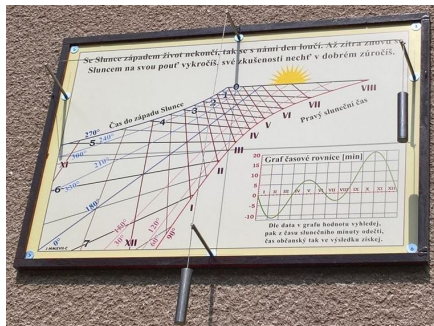 Se Slunce západem život nekončí, tak se s námi den loučí. Až zítra znovu se
Sluncem na svou pouť vykročíš, své zkušenosti nechť v dobrém zúročíš.
Čas do západu Slunce
0
1
2
3
4
5
6
7
270°
240°
300°
210°
330°
180°
0°
180°
30°
120°
60°
90°
XI
XII
I
II
III
IV
V
VI
VII
VIII
Pravý sluneční čas
Graf časové rovnice [min]
20
15
10
5
0
-5
-10
I II III IV V VI VII VIII IX X XI XII
Dle data v grafu hodnotu vyhledej,
pak z času slunečního minuty odečti,
čas občanský tak ve výsledku získej.